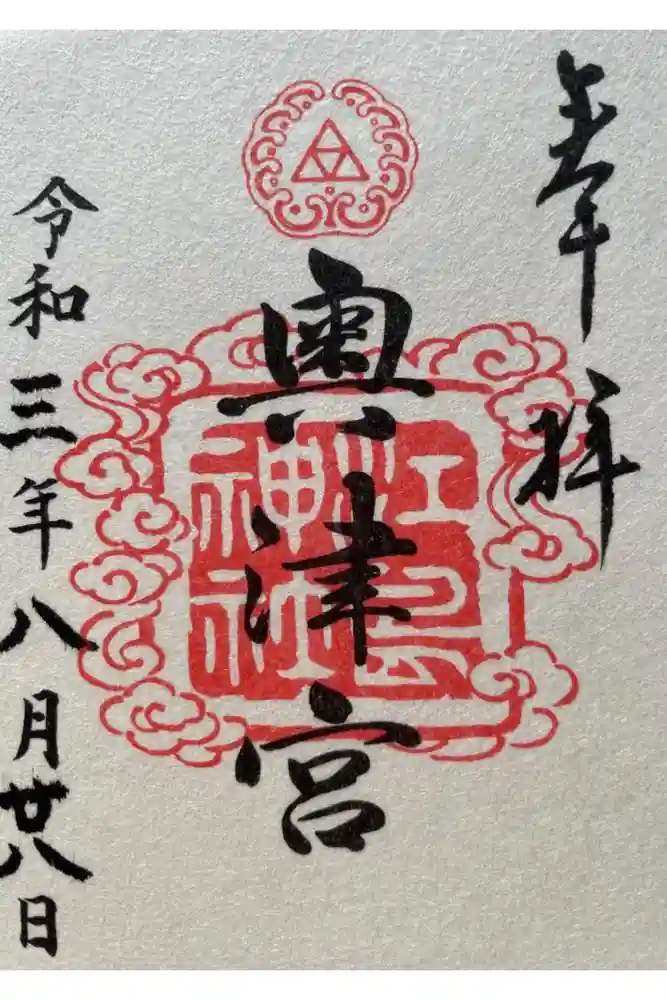 奉拝
奥津宮
江島神社
令和三年八月廿八日